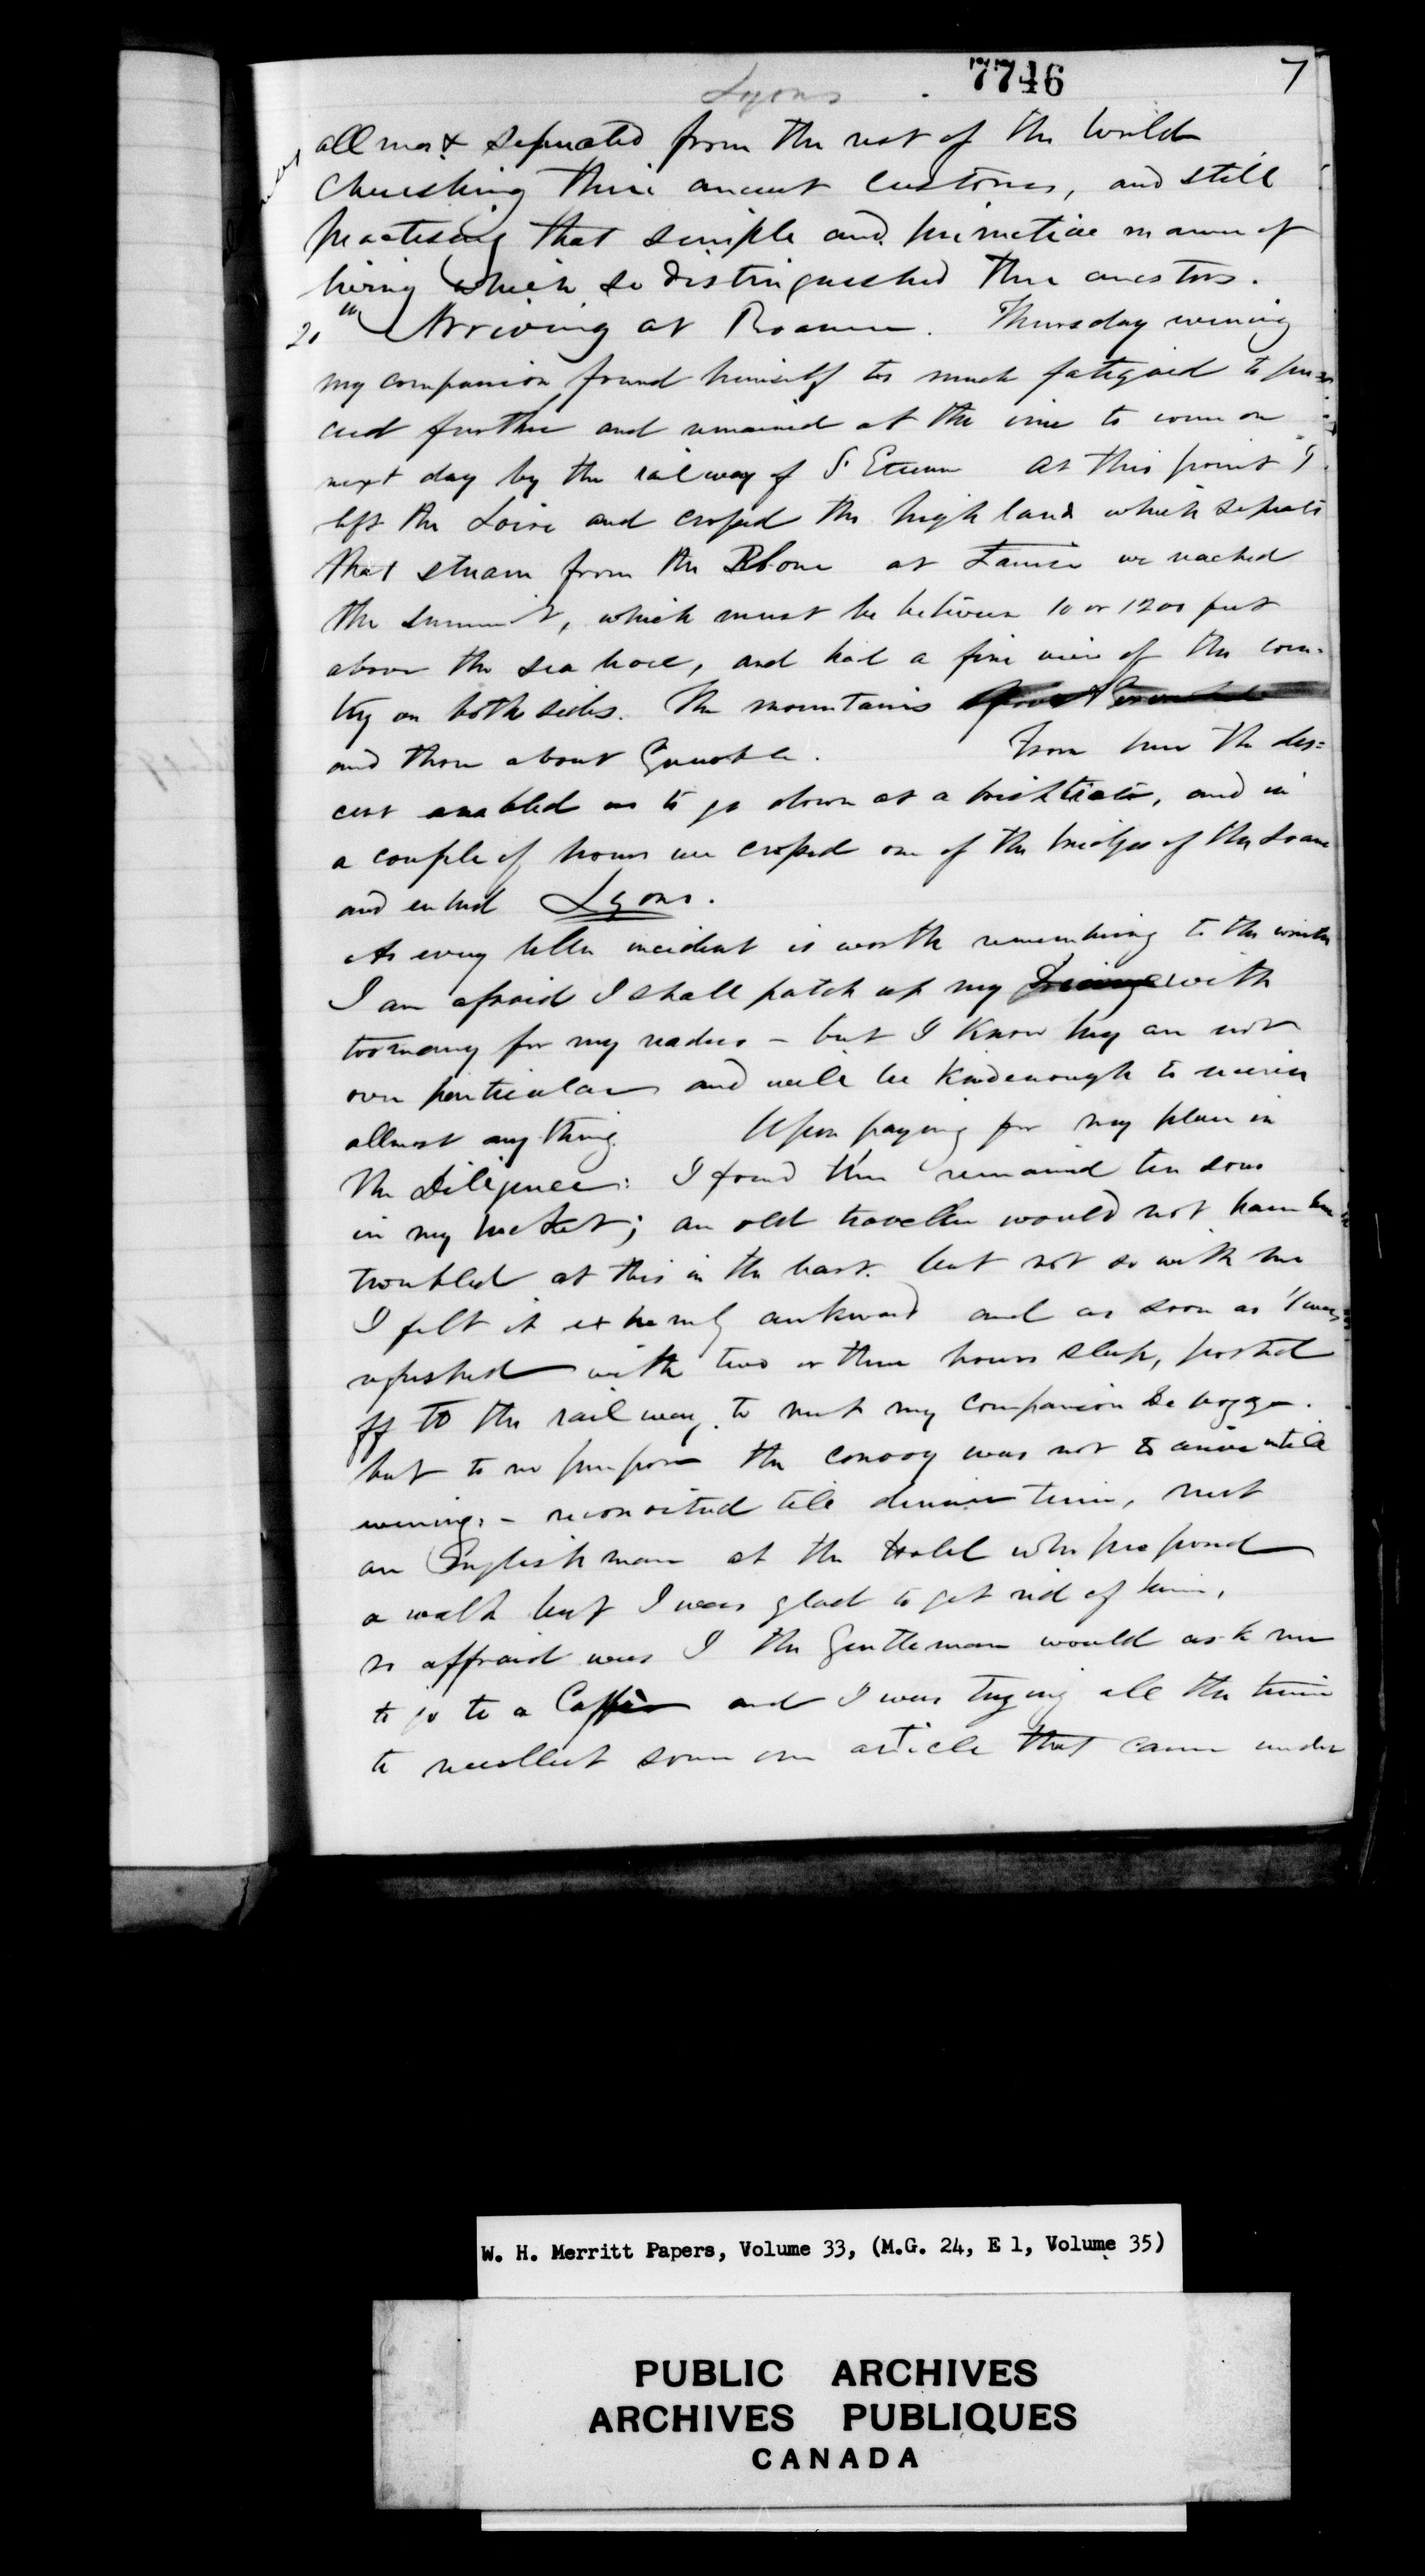 Lyons 7746 7
allmost seperated from the rest of the World
Cherishing thire ancient Customs, and still
practiseing that simple and primetive manner of
living which so distinguished thire ancestors.
20th Arriving at Roanne. Thursday evening
my companion found himself to much fatigaid to pro-
ceed further and remained at the inn to come on
next day by the rail way of St Etienne At this point I
left the Loire and crossed the high land which seperats
that stream from the Rhone at Tarare we reached
the summit, which must be between 10 or 1200 feet
above the sea level, and had a fine view of the coun-
try on both sides. The mountains
and those about Grenoble. From here the des=
cent enabled us to go down at a brisk rate, and in
a couple of hours we crossed one of the bridges of the Soane
and entred Lyons.
As every little incident is worth remembering to the writer
I am afraid I shall patch up my with
too many for my readers - but I know they are not
over particular and will be kind enough to receive
allmost any thing. Upon paying for my place in
the Diligence: I found there remained ten sous
in my pocket; an old traveller would not have been
troubled at this in the least. but not so with me
I felt it extremely awkward and as soon as I was
refreshed with two or three hours sleep, posted
off to the rail way to meet my companion
but to no purpose the convoy was not to arrive untill
evening. - reconoitred till dinner time, met
an Englishman at the Hotel who proposed
a walk but I was glad to get rid of him,
so affraid was I the Gentleman would ask me
to go to a Caffé and I was trying all the time
to recollect some one article that came under
W. H. Merritt Papers, Volume 33, (M.G. 24, E 1, Volume 35)
PUBLIC ARCHIVES
ARCHIVES PUBLIQUES
CANADA